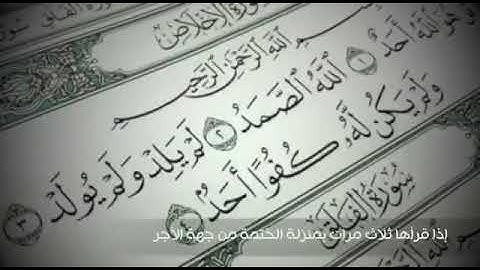 سُورَةُ الإِخْلَاصِ
بِسْمِ اللَّهِ الرَّحْمَٰنِ الرَّحِيمِ
هُوَ اللَّهُ أَحَدٌ ١ اللَّهُ الصَّمَدُ ٢ لَمْ يَلِدْ وَلَمْ يُولَدْ ٣
وَلَمْ يَكُن لَّهُ كُفُوًا أَحَدٌ ٤
سُورَةُ الفَلَقِ
إذا قرأها ثلاث مرات بمنزلة الختمة من جهة الأجر